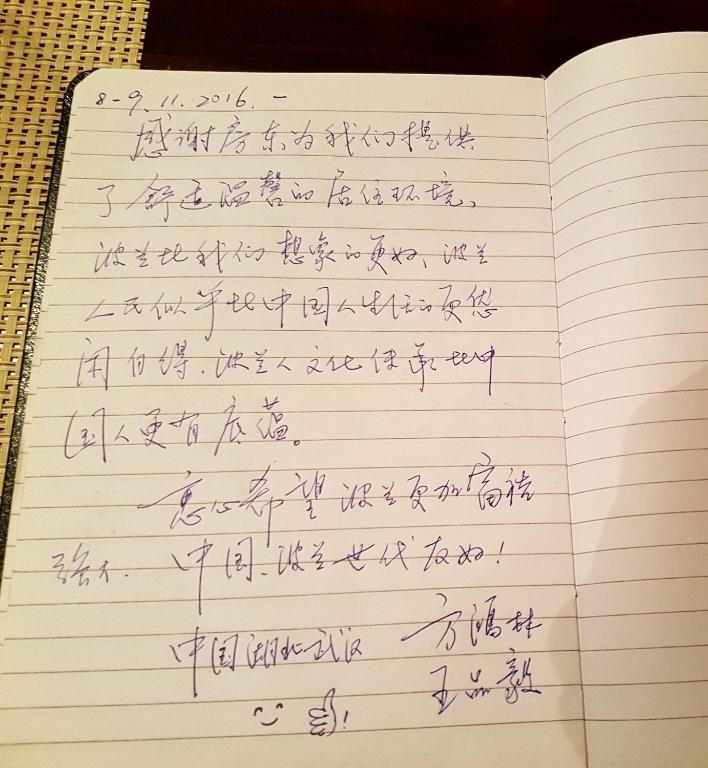 8-9.11.2016. —
感谢房东为我们提供
了舒适温馨的居住环境、
波兰比我们想象的更好、波兰
人民似乎比中国人生活的更悠
闲自得.波兰人文化传承比中
国人更有底蕴。
衷心希望波兰更加富裕
强大. 中国、波兰世代友好!
中国湖北武汉 方鸿林
王品毅
!